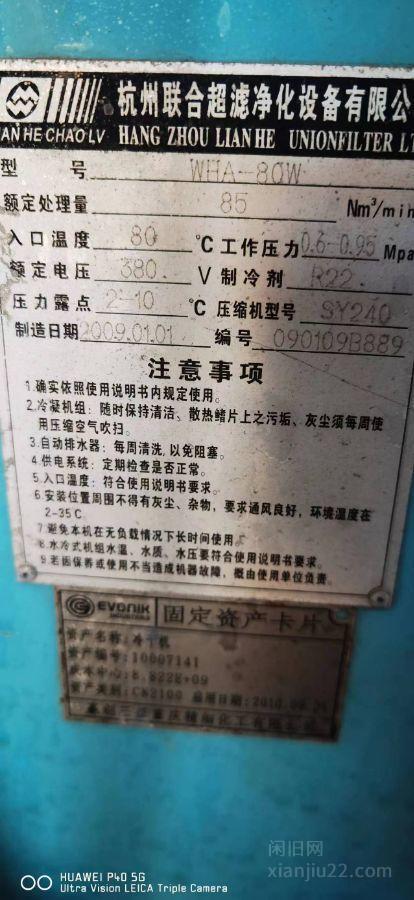 杭州联合超滤净化设备有限公
AN HE CHAO LV HANG ZHOU LIAN HE UNIONFILTER LT
型号 WHA-80W
额定处理量 85 Nm³/min
入口温度 80 ℃ 工作压力 0.6-0.95 Mpa
额定电压 380 V 制冷剂 R22
压力露点 2-10 ℃ 压缩机型号 SY240
制造日期 2009.01.01 编号 090109B889
注意事项
1.确实依照使用说明书内规定使用。
2.冷凝机组：随时保持清洁、散热鳍片上之污垢、灰尘须每周使
用压缩空气吹扫。
3.自动排水器：每周清洗,以免阻塞。
4.供电系统：定期检查是否正常。
5.入口温度：符合使用说明书要求。
6.安装位置周围不得有灰尘、杂物，要求通风良好，环境温度在
2-35℃
7.避免本机在无负载情况下长时间使用。
8.水冷式机组水温、水质、水压要符合使用说明书要求。
9.若因保养或使用不当造成机器故障，概由使用单位负责。
EVONIK INDUSTRIES 固定资产卡片
资产名称:冷干机
资产编号:10007141
成本中心:8.822E+09
资产类别:CN2100 启用日期:2010.09.
重庆精细化工有限公司
HUAWEI P40 5G
Ultra Vision LEICA Triple Camera
闲旧网
xianjiu22.com